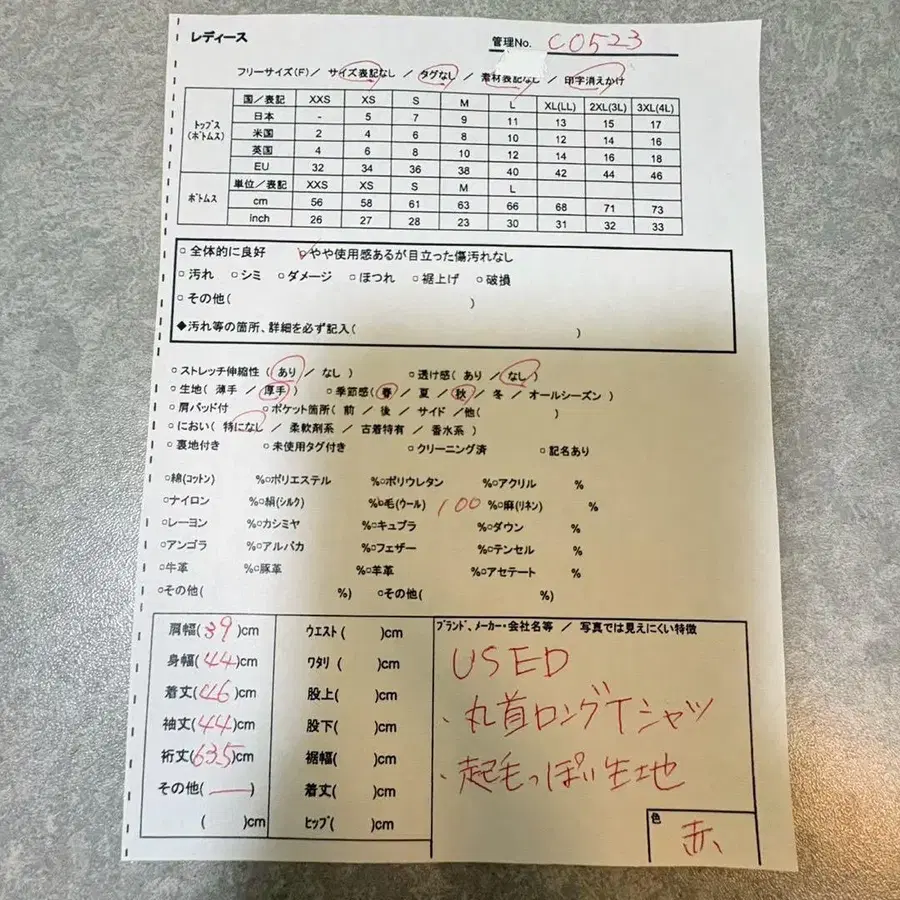 レディース
管理No. C0523
フリーサイズ(F)／ サイズ表記なし ／ タグなし ／ 素材表記なし ／ 印字消えかけ
国／表記 XXS XS S M L XL(LL) 2XL(3L) 3XL(4L)
トップス(ボトムス)
日本 - 5 7 9 11 13 15 17
米国 2 4 6 8 10 12 14 16
英国 4 6 8 10 12 14 16 18
EU 32 34 36 38 40 42 44 46
ボトムス
単位／表記 XXS XS S M L
cm 56 58 61 63 66 68 71 73
inch 26 27 28 23 30 31 32 33
□ 全体的に良好 □やや使用感あるが目立った傷汚れなし
□ 汚れ □ シミ □ ダメージ □ ほつれ □ 裾上げ □ 破損
□ その他( )
◆汚れ等の箇所、詳細を必ず記入( )
○ ストレッチ伸縮性 ( あり ／ なし ) □ 透け感 ( あり ／ なし )
○ 生地 ( 薄手 ／ 厚手 ) □ 季節感 ( 春 ／ 夏 ／ 秋 ／ 冬 ／ オールシーズン )
○ 肩パッド付 □ ポケット箇所 ( 前 ／ 後 ／ サイド ／他( )
○ におい ( 特になし ／ 柔軟剤系 ／ 古着特有 ／ 香水系 )
○ 裏地付き □ 未使用タグ付き □ クリーニング済 □ 記名あり
○綿(コットン) %○ポリエステル %○ポリウレタン %○アクリル %
○ナイロン %○絹(シルク) %○毛(ウール) 100 %○麻(リネン) %
○レーヨン %○カシミヤ %○キュプラ %○ダウン %
○アンゴラ %○アルパカ %○フェザー %○テンセル %
○牛革 %○豚革 %○羊革 %○アセテート %
○その他( %) ○その他( %)
肩幅(39)cm
身幅(44)cm
着丈( )cm
袖丈(44)cm
裄丈(63.5)cm
その他( )
( )cm
ウエスト ( )cm
ワタリ ( )cm
股上( )cm
股下( )cm
裾幅( )cm
着丈( )cm
ヒップ( )cm
ブランド、メーカー・会社名等 ／ 写真では見えにくい特徴
USED
・丸首ロングTシャツ
・起毛っぽい生地
色
赤、